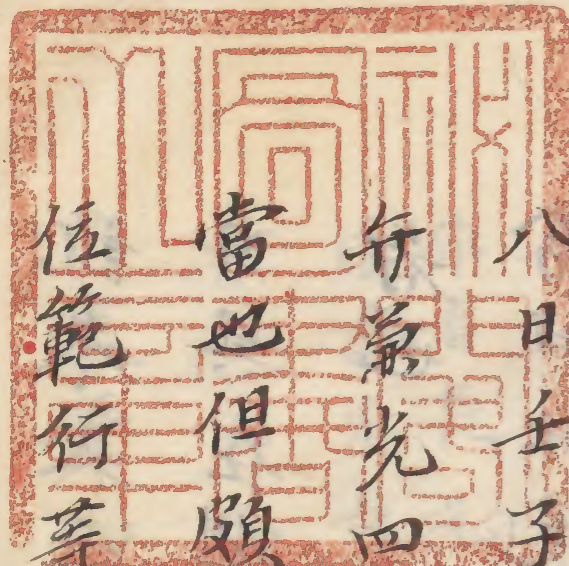 八日壬子
弁兼光四
當也但頗
位範行等